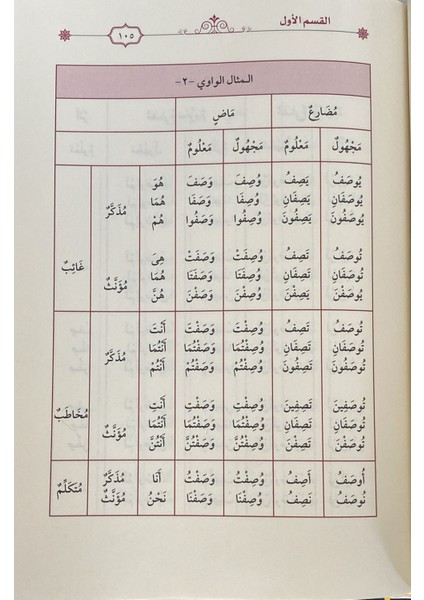 القسم الأول
١٠٥
المثال الواوي -٢-
مُضَارِعٌ مَاضٍ
مَجْهُولٌ مَعْلُومٌ مَجْهُولٌ مَعْلُومٌ
يُوصَفُ يَصِفُ وُصِفَ وَصَفَ هُوَ
يُوصَفَانِ يَصِفَانِ وُصِفَا وَصَفَا هُمَا مُذَكَّرٌ
يُوصَفُونَ يَصِفُونَ وُصِفُوا وَصَفُوا هُمْ
غَائِبٌ
تُوصَفُ تَصِفُ وُصِفَتْ وَصَفَتْ هِىَ
تُوصَفَانِ تَصِفَانِ وُصِفَتَا وَصَفَتَا هُمَا مُؤَنَّثٌ
يُوصَفْنَ يَصِفْنَ وُصِفْنَ وَصَفْنَ هُنَّ
تُوصَفُ تَصِفُ وُصِفْتَ وَصَفْتَ أَنْتَ
تُوصَفَانِ تَصِفَانِ وُصِفْتُمَا وَصَفْتُمَا أَنْتُمَا مُذَكَّرٌ
تُوصَفُونَ تَصِفُونَ وُصِفْتُمْ وَصَفْتُمْ أَنْتُمْ
مُخَاطَبٌ
تُوصَفِينَ تَصِفِينَ وُصِفْتِ وَصَفْتِ أَنْتِ
تُوصَفَانِ تَصِفَانِ وُصِفْتُمَا وَصَفْتُمَا أَنْتُمَا مُؤَنَّثٌ
تُوصَفْنَ تَصِفْنَ وُصِفْتُنَّ وَصَفْتُنَّ أَنْتُنَّ
أُوصَفُ أَصِفُ وُصِفْتُ وَصَفْتُ أَنَا مُذَكَّرٌ مُتَكَلِّمٌ
نُوصَفُ نَصِفُ وُصِفْنَا وَصَفْنَا نَحْنُ مُؤَنَّثٌ